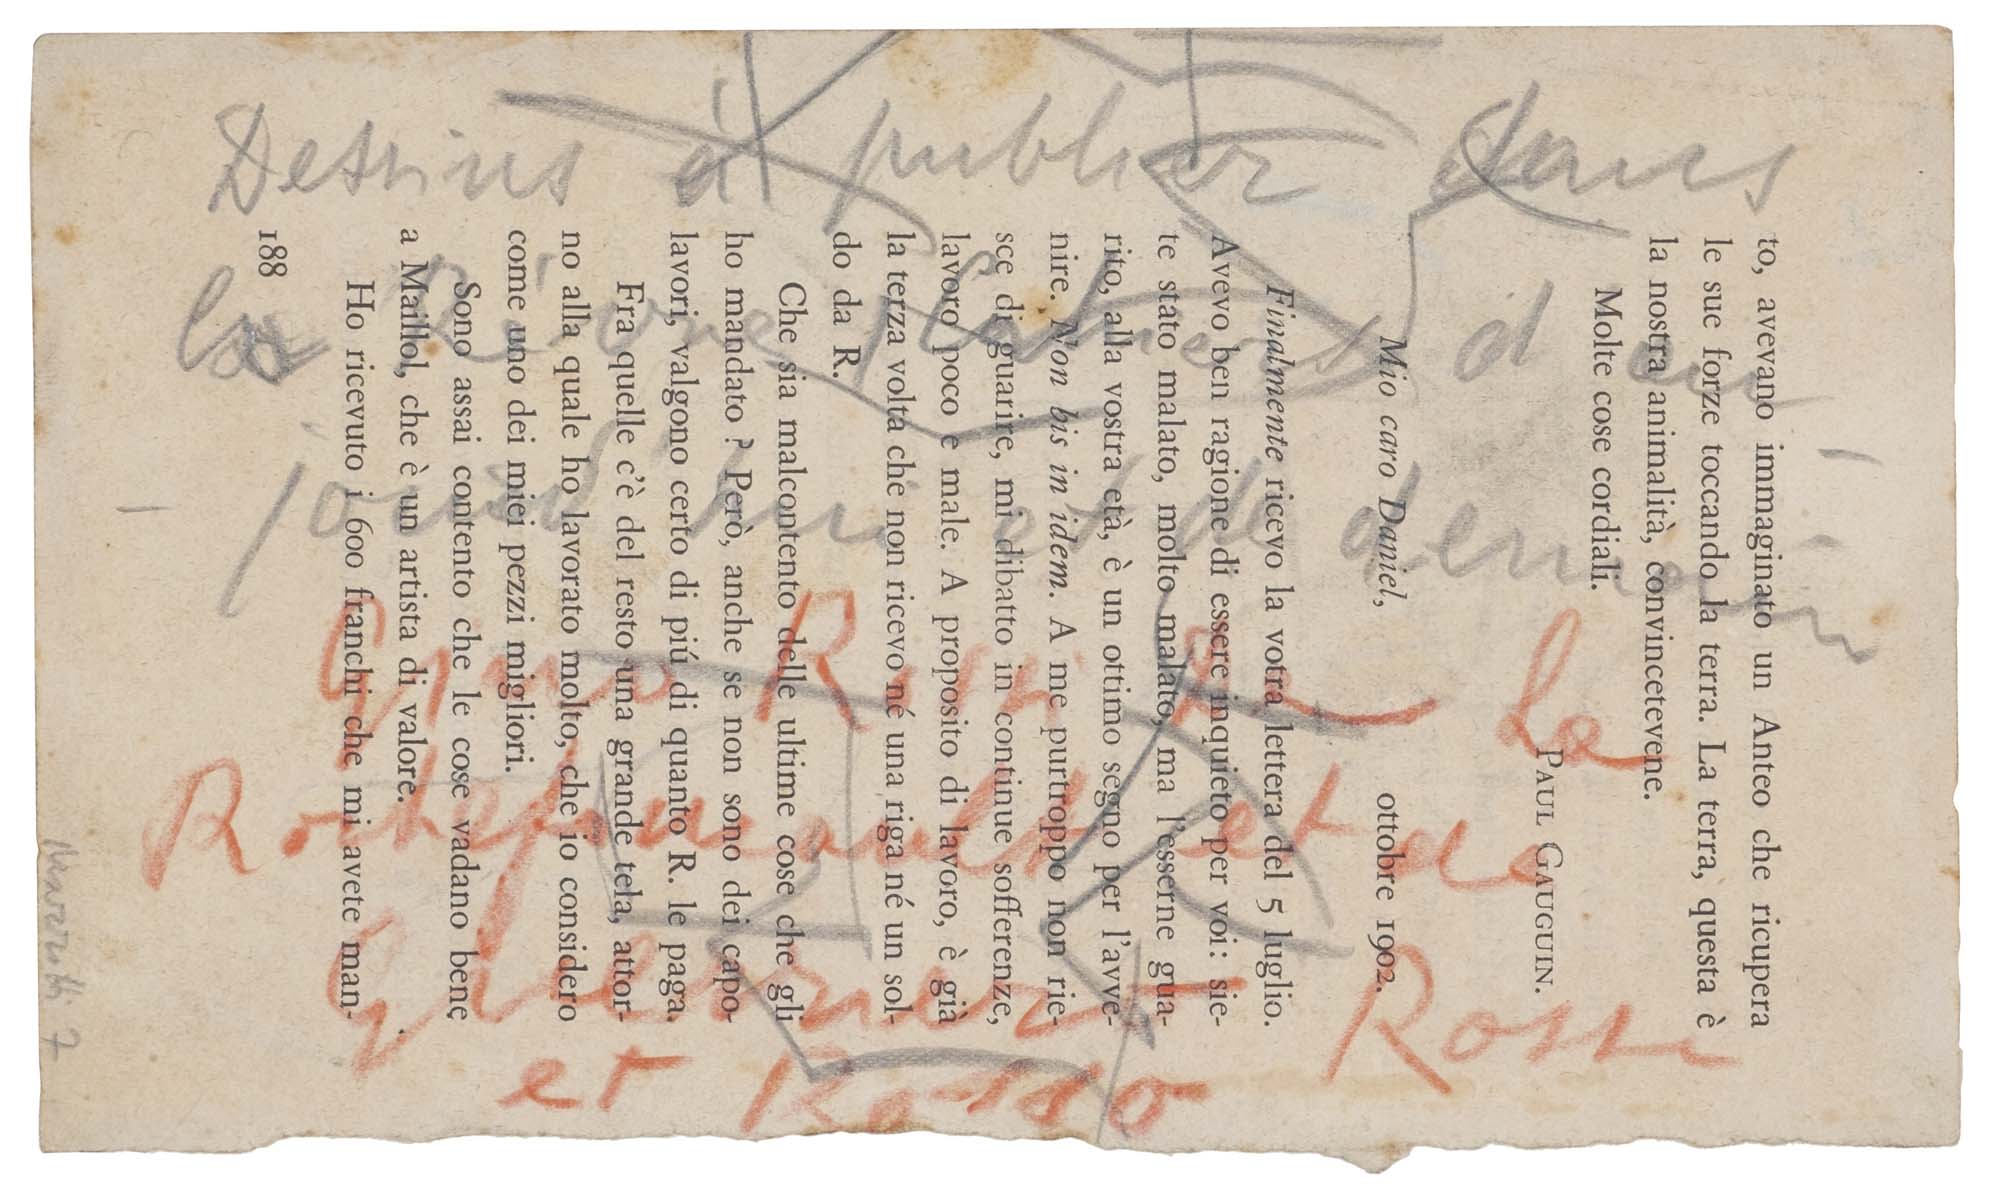 Dessins à publier dans
d'au
jourd'hui et de demain
de La
Rochefoucault et de
Rossi
et Rosso
to, avevano immaginato un Anteo che ricupera
le sue forze toccando la terra. La terra, questa è
la nostra animalità, convincetevene.
Molte cose cordiali.
PAUL GAUGUIN.
Mio caro Daniel,
ottobre 1902.
Finalmente ricevo la votra lettera del 5 luglio.
Avevo ben ragione di essere inquieto per voi: sie-
te stato malato, molto malato, ma l'esserne gua-
rito, alla vostra età, è un ottimo segno per l'avve-
nire. Non bis in idem. A me purtroppo non rie-
sce di guarire, mi dibatto in continue sofferenze,
lavoro poco e male. A proposito di lavoro, è già
la terza volta che non ricevo né una riga né un sol-
do da R.
Che sia malcontento delle ultime cose che gli
ho mandato? Però, anche se non sono dei capo-
lavori, valgono certo di piú di quanto R. le paga.
Fra quelle c'è del resto una grande tela, attor-
no alla quale ho lavorato molto, che io considero
come uno dei miei pezzi migliori.
Sono assai contento che le cose vadano bene
a Maillol, che è un artista di valore.
Ho ricevuto i 600 franchi che mi avete man-
188